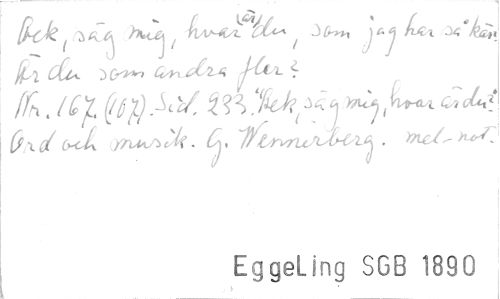 Bek, säg mig, hvar är du, som jag har så kär
Är du som andra fler?
Nr. 167. (107). Sid. 233. "Bek, säg mig, hvar är du?"
Ord och musik. G. Wennerberg. mel-not.
EggeLing SGB 1890